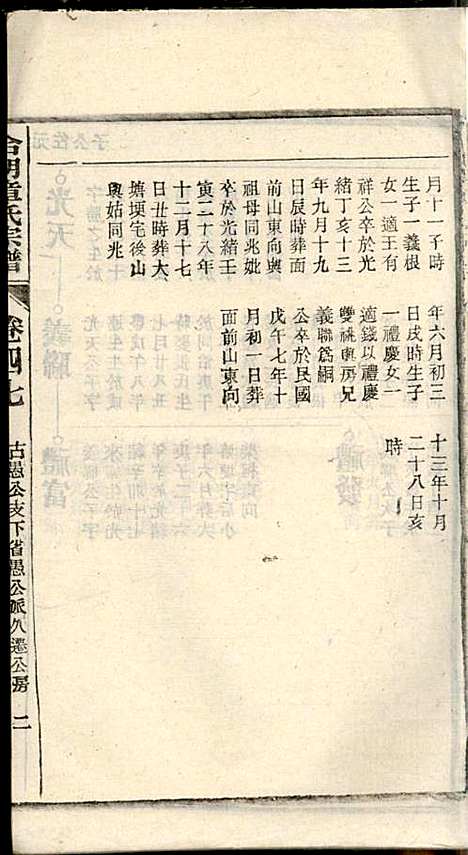 月十一子時
生子一義根
女一適王有
祥公卒於光
緒丁亥十三
年九月十九
日辰時葬面
前山東向與
祖母同兆妣
卒於光緒壬
寅二十八年
十二月十七
日丑時葬大
塘塛宅後山
與姑同兆
年六月初三
日戌時生子
一禮慶女一
適錢以禮慶
雙祧與房兄
義聯爲嗣
公卒於民國
戊午七年十
月初一日葬
面前山東向
十三年十月
二十八日亥
時
合明童氏宗譜
卷四七
古愚公支下省愚公派久遷公房
二